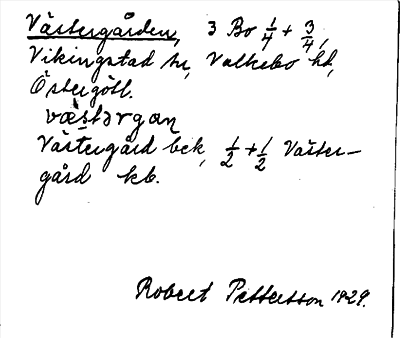 Västergården, 3 Bo 1/4 + 3/4,
Vikingstad sn, Valkebo hd,
Östergötl.
væstərgan
Västergård bek, 1/2 + 1/2 Väster-
gård kb.
Robert Pettersson 1929.